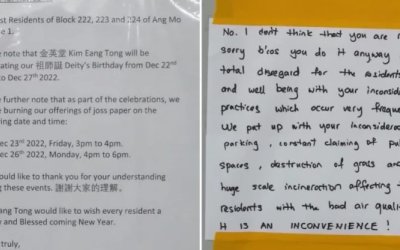 est Residents of Block 222, 223 and 224 of Ang Mo
e 1.
e note that 金英堂 Kim Eang Tong will be
ating our 祖師誕 Deity's Birthday from Dec 22nd
o Dec 27th 2022.
e further note that as part of the celebrations, we
e burning our offerings of joss paper on the
ing date and time:
ec 23rd 2022, Friday, 3pm to 4pm.
ec 26th 2022, Monday, 4pm to 6pm.
ould like to thank you for your understanding
g these events. 謝謝大家的理解。
ang Tong would like to wish every resident a
y and Blessed coming New Year.
truly,
No. I don't think that you are
sorry b'cos you do it anyway
total disregard for the residents
and well being with your inconsid
practices which occur very freque
We put up with your inconsidera
parking, constant claiming of pub
spaces, destruction of grass and
huge scale incineration affecting t
residents with the bad air quali
It IS AN INCONVENIENCE!